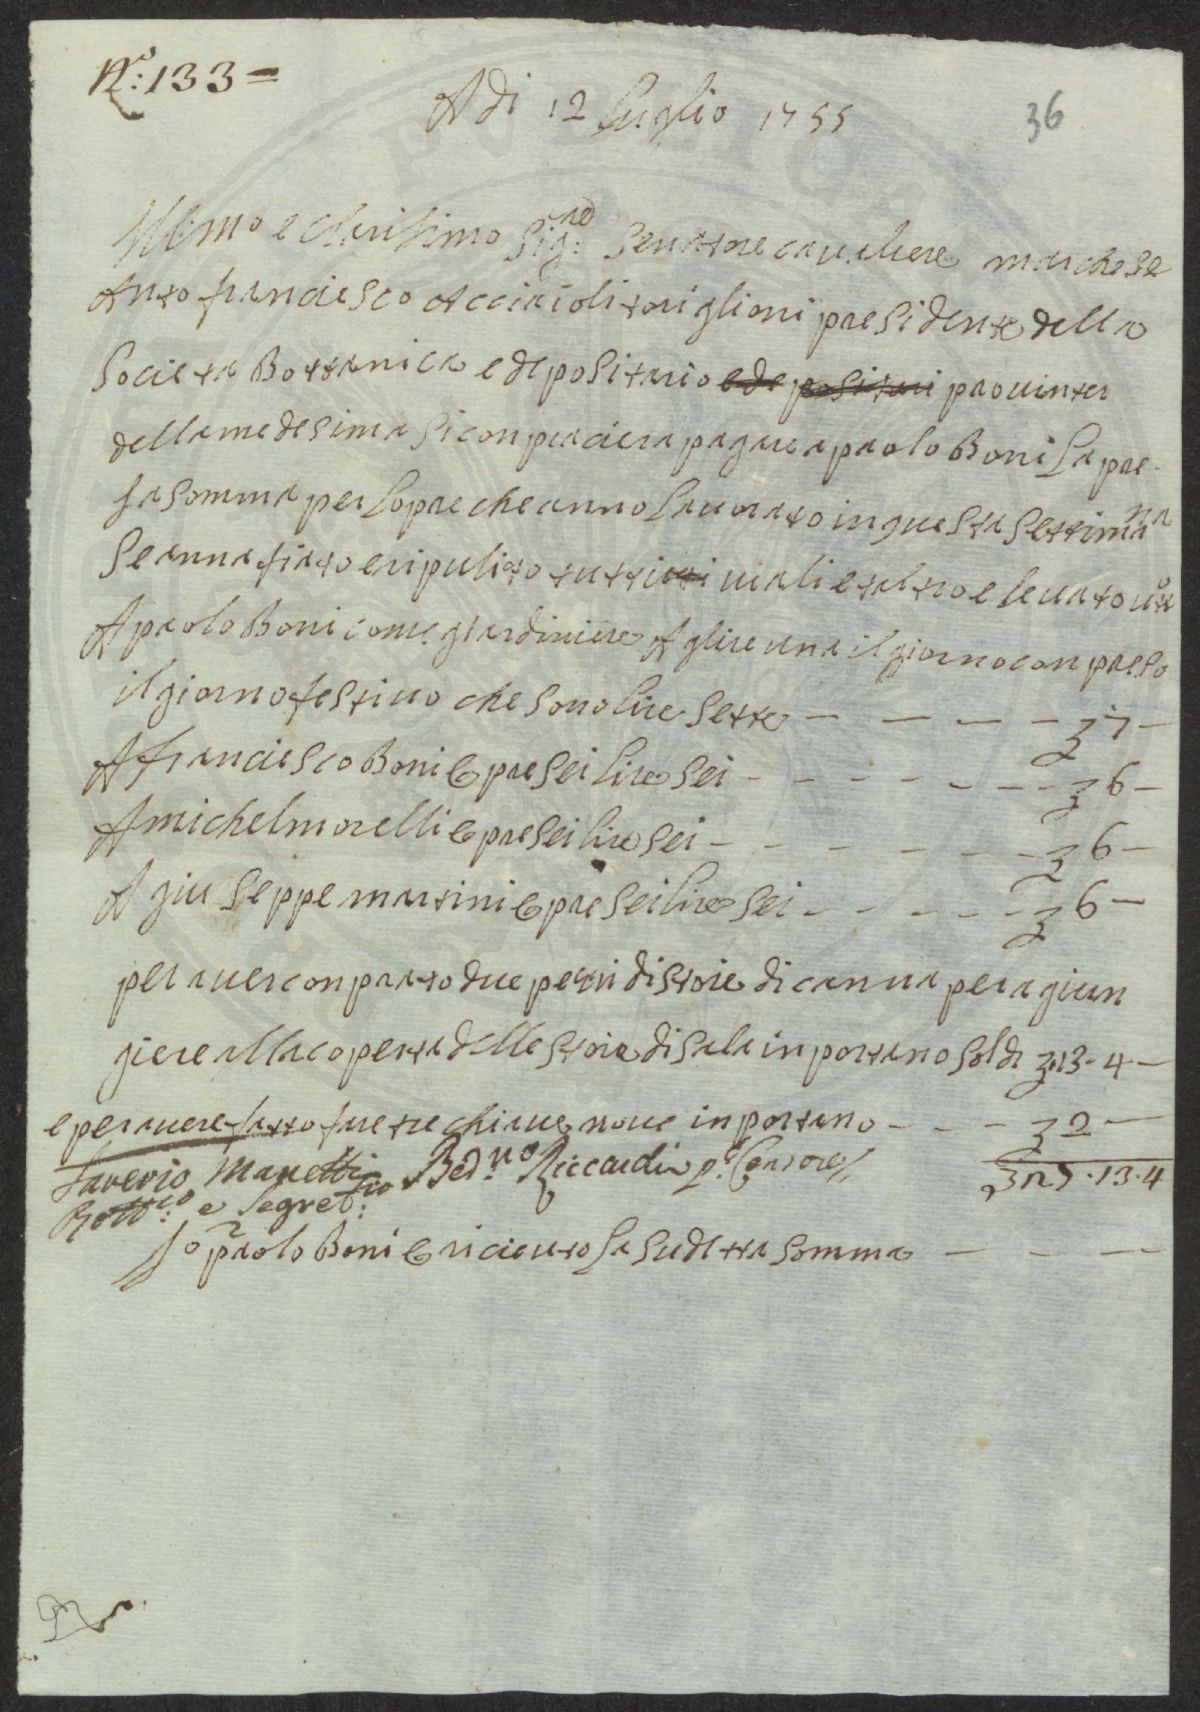 N.o: 133 =
A di 12 luglio 1755
36
Ill:mo e Clarisimo Sig:re Senatore cavaliere marchese
Anto francesco Acciaioli toriglioni presidente della
Societa Bottanica e depositario ede positari provinter
dellamedesima si conpiaciera pagare a paolo Boni La pre
sa somma per Lopre che anno Lavorato in questa settimana
Se annafiato e ripulito tutti viali e taltro e levato
A paolo Boni come giardiniere A glire una il giorno conpreso
il giorno festivo che sono lire sette — — — — 7 —
A franciesco Boni E pre sei lire sei - - - - - - - 6 —
A michel morelli E pre sei lire sei - - - - - - - 6 —
A giuseppe martini E pre sei lire sei - - - - - - 6 —
per aver conprato due pezzi di stoie di canna per agiun
giere alla coperta delle stoie di sala inportano soldi 13 - 4 —
e per avere fatto fare tre chiave nove inportano - - - - 2 —
Saverio Manetti Bed:no Riccardi p:o Censore 13.4
Bott:co e Segret:rio
Io paolo Boni E riceuto La sudetta somma — — — —